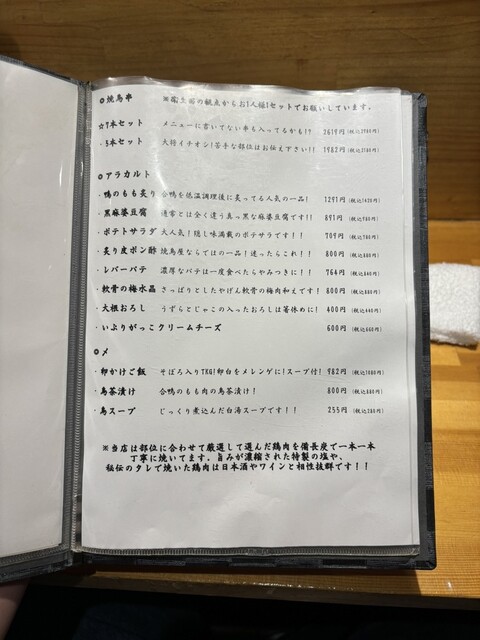 ◎焼鳥串 ※衛生面の観点からお1人様1セットでお願いしています。
☆7本セット メニューに書いてない串も入ってるかも!? 2619円
・5本セット 大将イチオシ!苦手な部位はお伝え下さい!! 1982円
◎アラカルト
・鴨のもも炙り 合鴨を低温調理後に炙ってる人気の一品! 1291円(税込1420円)
・黒麻婆豆腐 通常とは全く違う真っ黒な麻婆豆腐です!! 891円(税込980円)
・ポテトサラダ 大人気!隠し味満載のポテサラです!! 709円(税込780円)
・炙り皮ポン酢 焼鳥屋ならではの一品!迷ったらこれ!! 800円(税込880円)
・レバーパテ 濃厚なパテは一度食べたらやみつきに!! 764円(税込840円)
・軟骨の梅水晶 さっぱりとしたやげん軟骨の梅肉和えです! 800円(税込880円)
・大根おろし うずらとじゃこの入ったおろしは箸休めに! 400円(税込440円)
・いぶりがっこクリームチーズ 600円(税込660円)
◎〆
・卵かけご飯 そぼろ入りTKG!卵白をメレンゲに!スープ付! 982円(税込1080円)
・鳥茶漬け 合鴨のもも肉の鳥茶漬け! 800円(税込880円)
・鳥スープ じっくり煮込んだ白湯スープです!! 255円(税込280円)
※当店は部位に合わせて厳選して選んだ鶏肉を備長炭で一本一本
丁寧に焼いてます。旨みが濃縮された特製の塩や、
秘伝のタレで焼いた鶏肉は日本酒やワインと相性抜群です!!